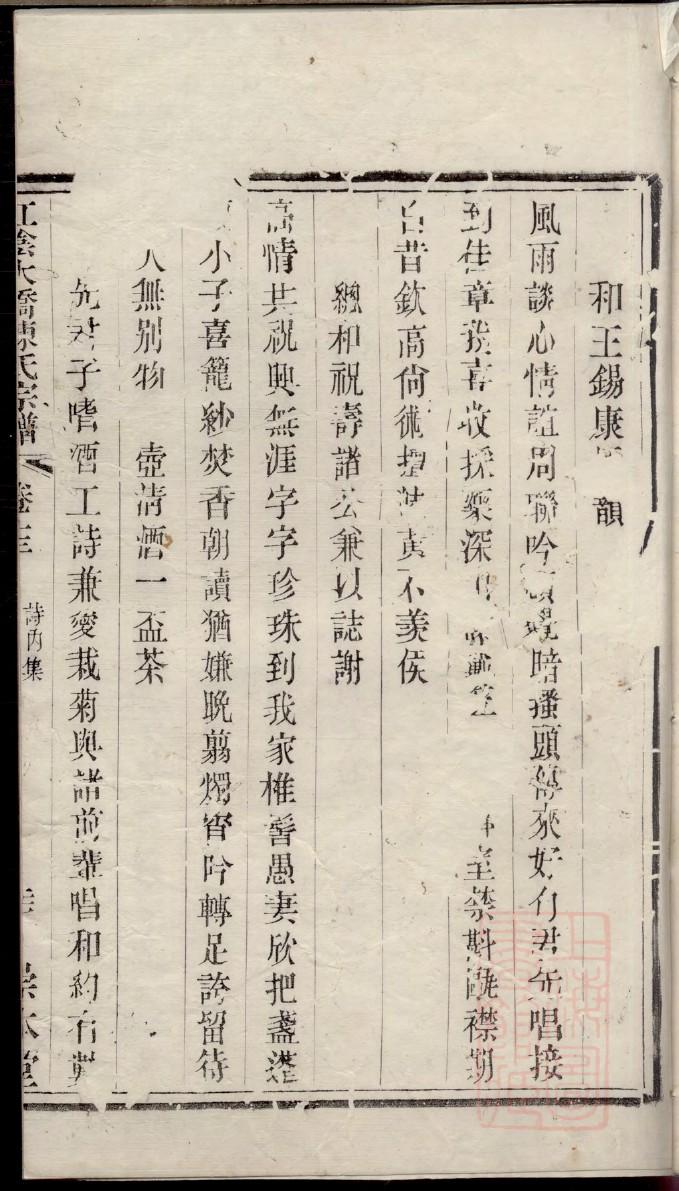 和王錫康 韻
風雨談心情誼周聯吟 暗搔頭 來好句君先唱接
到佳章我喜收採藥深 臺禁斟 襟期
自昔欽高尚術擅 黃不羨侯
總和祝壽諸公兼以誌謝
高情共祝興無涯字字珍珠到我家椎髻愚妻欣把盞蓬
小子喜籠紗焚香朝讀猶嫌晚剪燭宵吟轉足誇留待
人無别物 壺清酒一盃茶
先君子嗜酒工詩兼愛栽菊與諸前輩唱和約有
江陰大橋陳氏宗譜 卷 三 詩內集 宗本堂